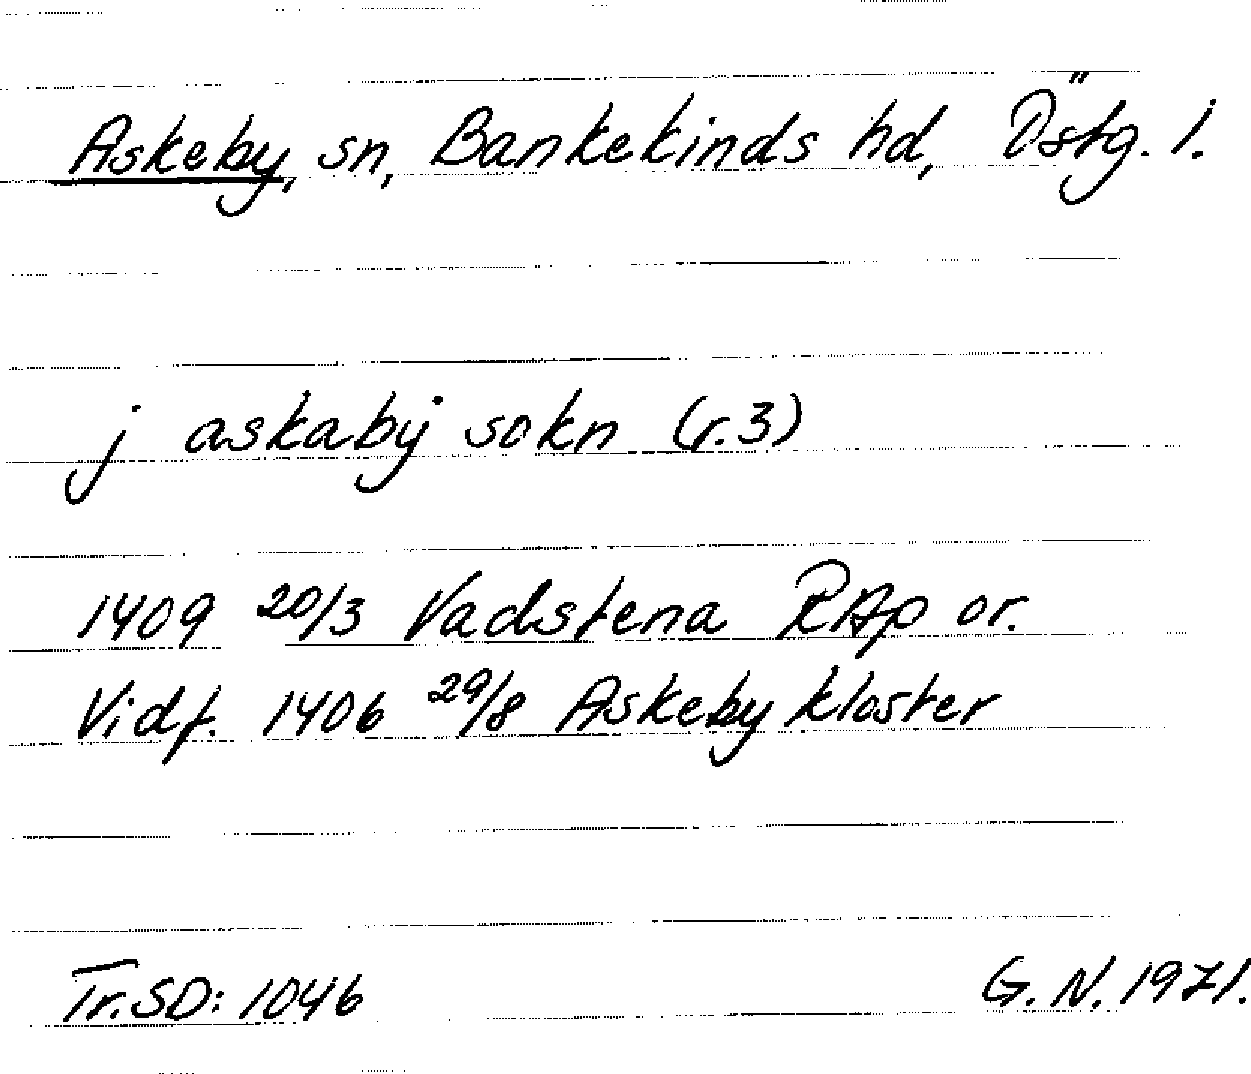 Askeby, sn, Bankekinds hd, Östg. l.
j askabÿ sokn (r.3)
1409 20/3 Vadstena RAp or.
Vidf. 1406 29/8 Askeby kloster
Tr. SD: 1046
G. N. 1971.